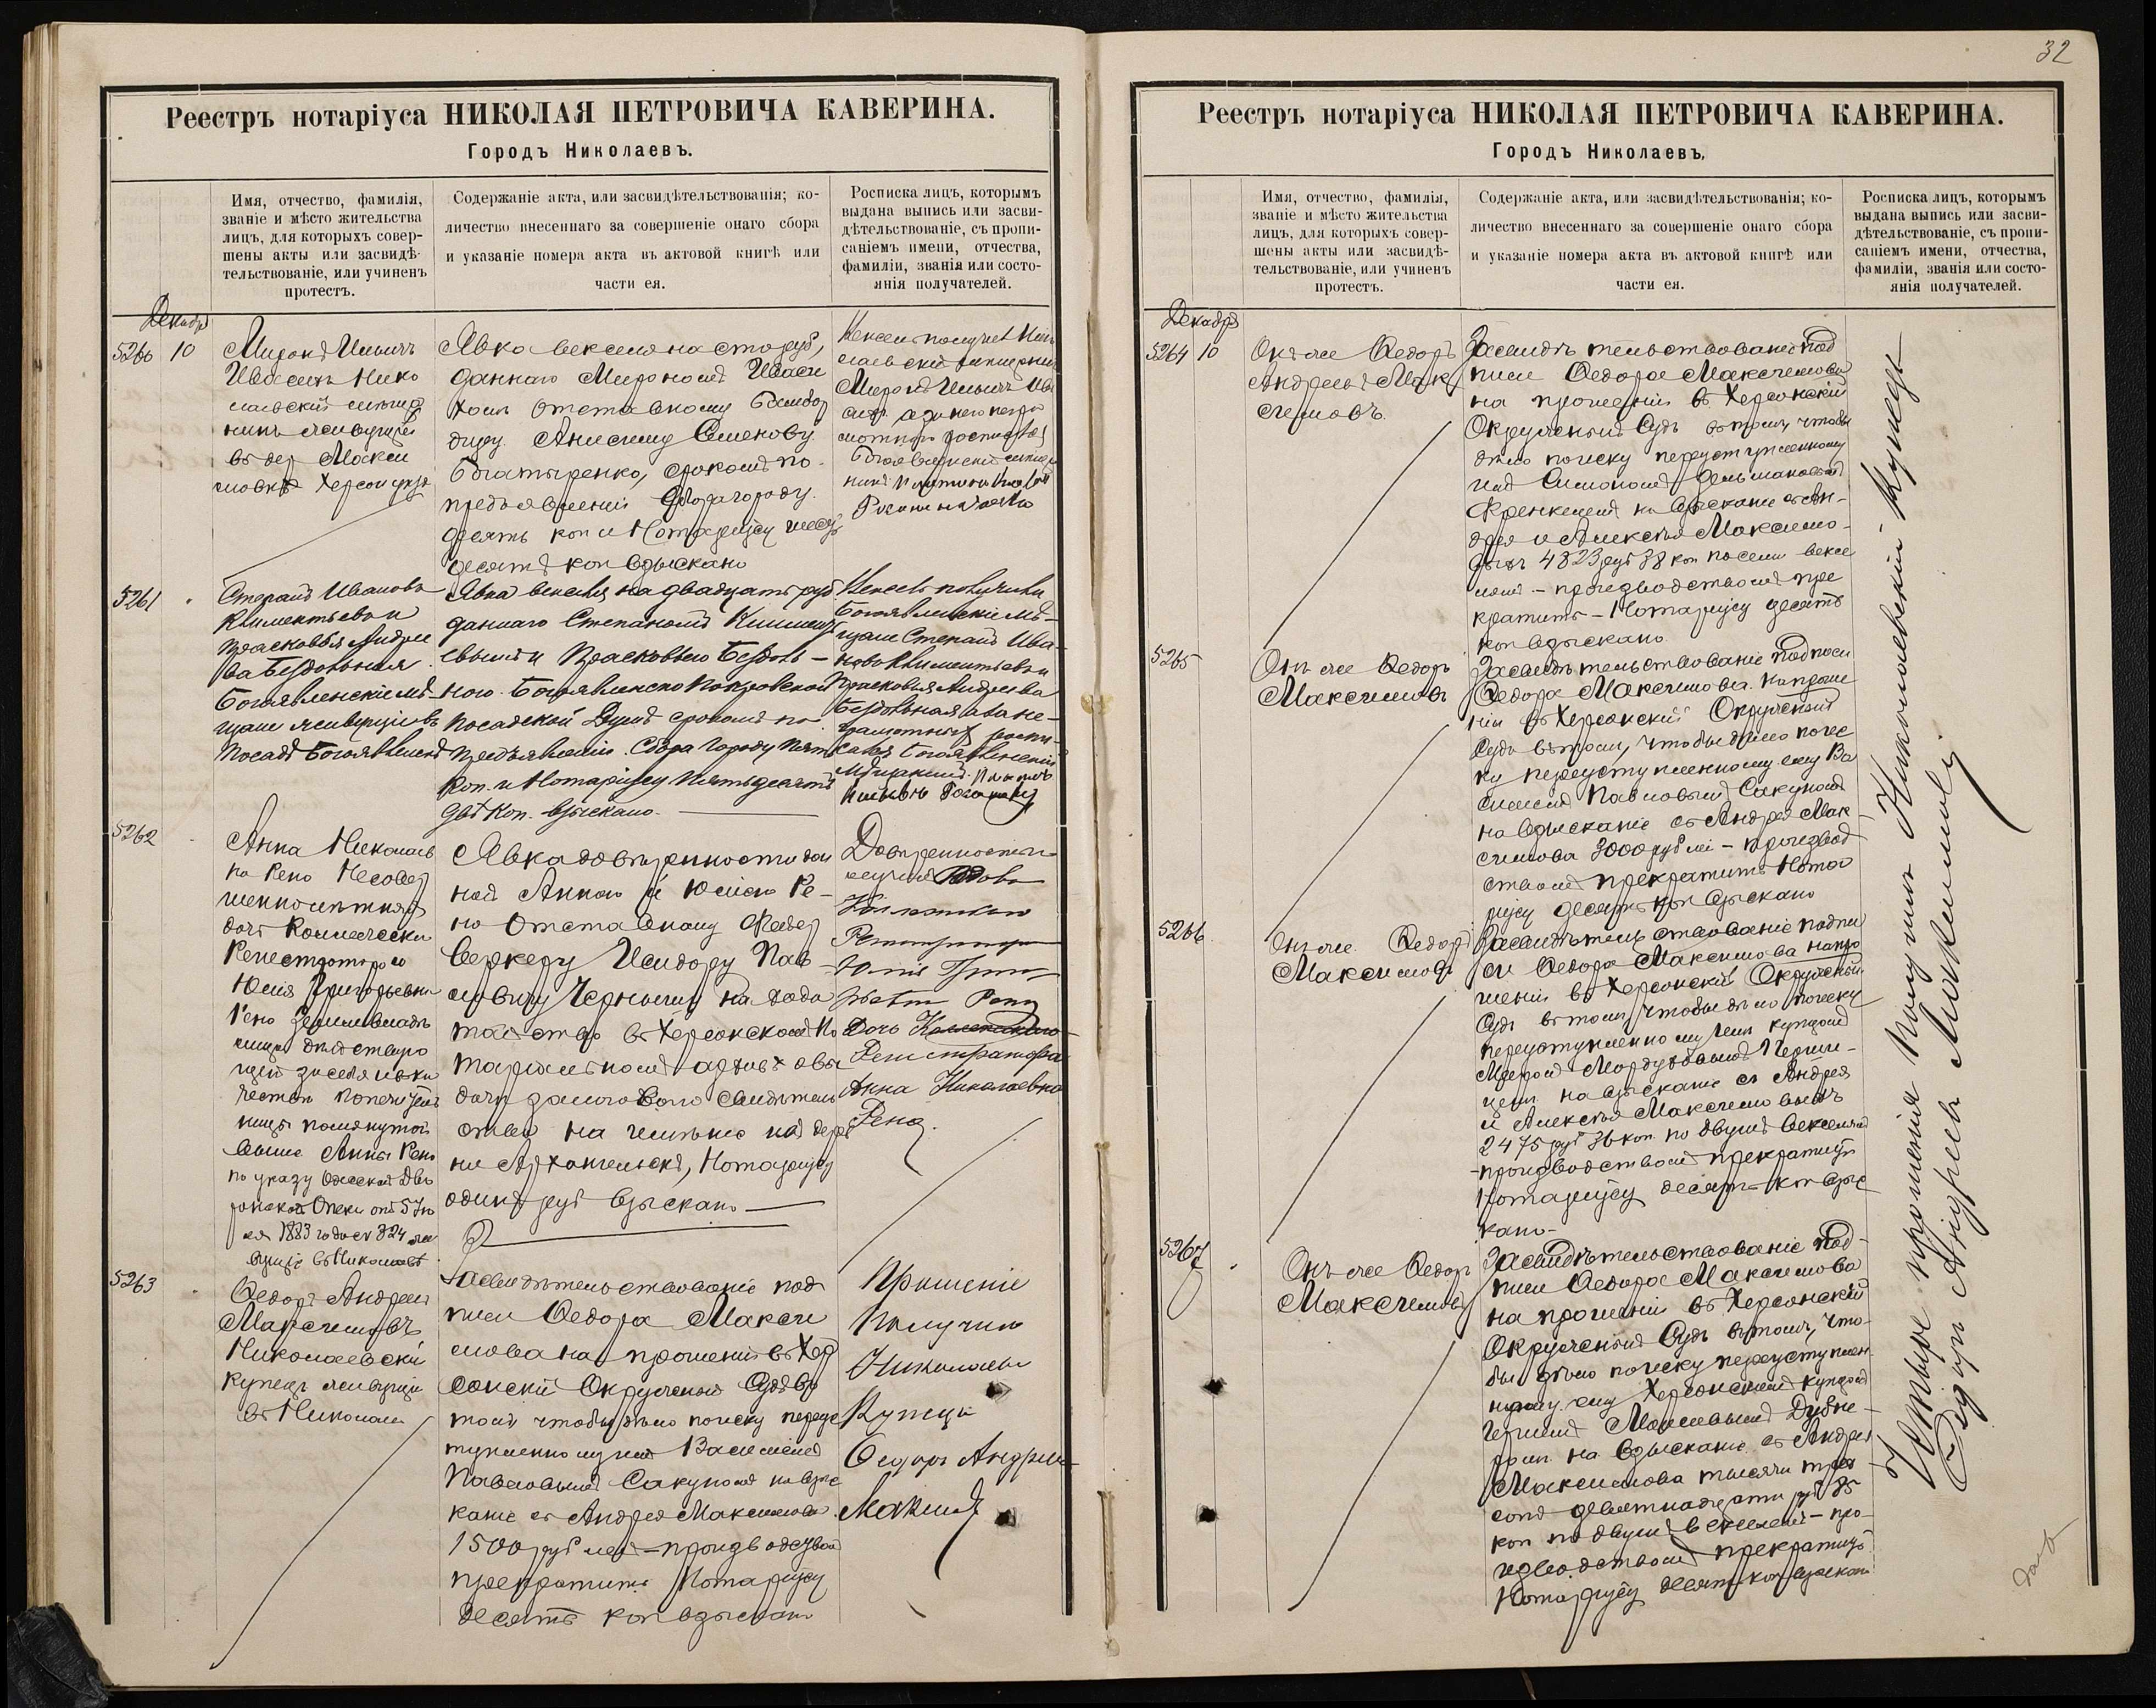 Реестръ нотаріуса НИКОЛАЯ ПЕТРОВИЧА КАВЕРИНА.
Городъ Николаевъ.
Имя, отчество, фамилія,
званіе и мѣсто жительства
лицъ, для которыхъ совер-
шены акты или засвидѣ-
тельствованіе, или учиненъ
протестъ.
Содержаніе акта, или засвидѣтельствованія; ко-
личество внесеннаго за совершеніе онаго сбора
и указаніе номера акта въ актовой книгѣ или
части ея.
Росписка лицъ, которымъ
выдана выпись или засви-
дѣтельствованіе, съ пропи-
саніемъ имени, отчества,
фамиліи, званія или состо-
янія получателей.
Декабря
5260 10
Миронъ Ильичъ
Нико
лаевскій
въ дер
Явка векселя на сто руб,
даннаго Мирономъ
отставному
Анисиму Семенову
Богатыренко, срокомъ по
предъявленіи Сбора городу
десять коп и Нотаріусу
десятъ коп взыскано
Вексель получилъ
Миронъ Ильичъ
5261
Степанъ Ивановъ
Климентьевъ и
Прасковья Андрее
ва Бездольная
Богоявленскіе мѣ
щане
Посадѣ
Явка векселя на двадцать руб
даннаго Степаномъ
и Прасковьею
Богоявленско Покровской
Посадской Думѣ срокомъ по
предъявленіи. Сбора городу пять
коп. и Нотаріусу пятьдесятъ
двѣ коп. взыскано.
Вексель получили
Богоявленскіе мѣ-
щане Степанъ Ива-
новъ Климентьевъ и
Прасковья Андреева
Бездольная а за не-
грамотныхъ
Богоявленскій
5262
Анна Николаев
на Рено Несовер
шеннолѣтняя
дочь Коллежски
Регистратора и
Юлія Григорьевна
Рено
за себя и въ ка
чествѣ Попечитель
ницы помянутой
выше Анны Рено
по указу Одесской Дво
рянской Опеки отъ 5 Iю
ля 1883 года за № 324
въ Николаевѣ
Явка довѣренности дан
ной Анною и Юліею Ре-
но Отставному
Исидору Пав
ловичу на хода
тайство въ Херсонскомъ Но
таріальномъ архивѣ о вы
дачи залогового свидѣтель
ства на имѣніе при дерев
ни Архангельскѣ, Нотаріусу
одинъ руб взыскано
Довѣренность
получила Вдова
Регистратора
Юлія
Рено
Дочь Коллежскаго
Регистратора
Анна Николаевна
Рено.
5263
Ѳедоръ Андреевъ
Максимовъ
Николаевскій
Купецъ живущій
въ Николаевѣ
Засвидѣтельствованіе под
писи Ѳедора Макси
мова на прошеніи въ Хер
сонскій Окружный Судъ въ
томъ чтобы дѣло по иску переус
тупленному имъ Василіемъ
Павловымъ Сакуномъ на взыс
каніе съ Андрея Максимова
1500 рублей – производствомъ
прекратить Нотаріусу
десять коп взыскано
Прошеніе
Получилъ
Николаевс
Купецъ
Ѳедоръ Андреевъ
Максимовъ
32
Реестръ нотаріуса НИКОЛАЯ ПЕТРОВИЧА КАВЕРИНА.
Городъ Николаевъ.
Имя, отчество, фамилія,
званіе и мѣсто жительства
лицъ, для которыхъ совер-
шены акты или засвидѣ-
тельствованіе, или учиненъ
протестъ.
Содержаніе акта, или засвидѣтельствованія; ко-
личество внесеннаго за совершеніе онаго сбора
и указаніе номера акта въ актовой книгѣ или
части ея.
Росписка лицъ, которымъ
выдана выпись или засви-
дѣтельствованіе, съ пропи-
саніемъ имени, отчества,
фамиліи, званія или состо-
янія получателей.
Декабря
5264 10
Онъ же Ѳедоръ
Андреевъ Мак
симовъ
Засвидѣтельствованіе под
писи Ѳедора Максимова
на прошеніи въ Херсонскій
Окружный Судъ въ томъ чтобы
дѣло по иску переуступленному
Френкелемъ на взысканіе съ Ан-
дрея и Алексѣя Максимо-
выхъ 4823 руб 38 коп по семи вексе
лямъ – производствомъ пре
кратить – Нотаріусу десять
коп взыскано
5265
Онъ же Ѳедоръ
Максимовъ
Засвидѣтельствованіе подписи
Ѳедора Максимова на проше
ніи въ Херсонскій Окружный
Судъ въ томъ, чтобы дѣло по ис
ку переуступленному ему Ва
силіемъ Павловымъ Сакуномъ
на взысканіе съ Андрея Мак-
симова 3000 рублей – производ
ствомъ прекратить Нота
ріусу десять коп взыскано
5266
Онъ же Ѳедоръ
Максимовъ
Засвидѣтельствованіе подпи
си Ѳедора Максимова на про
шеніи въ Херсонскій Окружный
Судъ въ томъ, чтобы дѣло по иску
переуступленному имъ купцомъ
на взысканіе съ Андрея
и Алексѣя Максимовыхъ
2475 руб 36 коп. по двумъ векселямъ
– производствомъ прекратить
Нотаріусу десять коп взыс
кано –
5267
Онъ же Ѳедоръ
Максимовъ
Засвидѣтельствованіе под-
писи Ѳедора Максимова
на прошеніи въ Херсонскій
Окружный Судъ въ томъ, что-
бы дѣло по иску переуступлен
ному ему Херсонскимъ купцомъ
на взысканіе съ Андрея
Максимова тысячи трех
сотъ девятнадцати руб 35
коп по двумъ векселямъ – про-
изводствомъ прекратить
Нотаріусу десять коп взыскано
Четыре прошенія получилъ Николаевскій Купецъ
Ѳедоръ Андреевъ Максимовъ